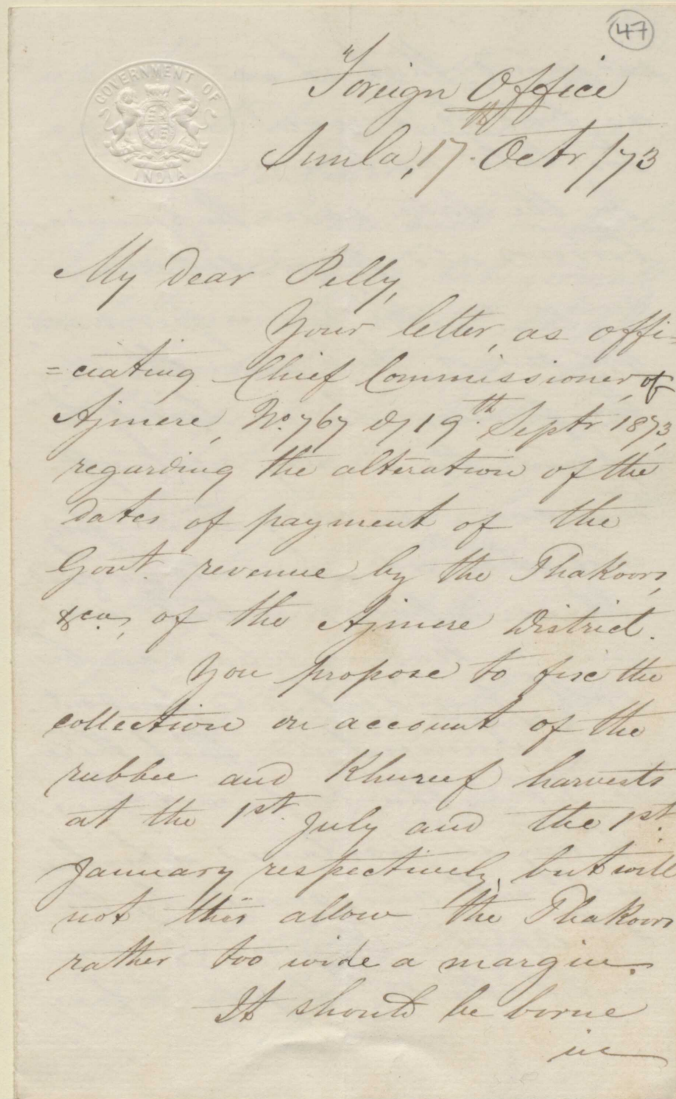 47
GOVERNMENT OF
INDIA
Foreign Office
Simla, 17th Octr /73
My dear Pelly,
Your letter, as offi-
=ciating Chief Commissioner, of
Ajmere, No. 767 of 19th Septr 1873,
regarding the alteration of the
dates of payment of the
Govt. revenue by the Thakoors,
&ca, of the Ajmere District.
You propose to fix the
collection on account of the
rubbee and Khureef harvests
at the 1st. July and the 1st.
January respectively, but will
not this allow the Thakoors
rather too wide a margin.
It should be borne
in